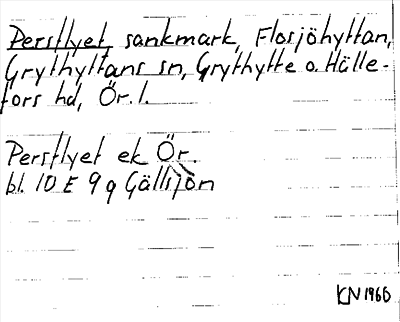 Persflyet, sankmark, Flosjöhyttan,
Grythyttans sn, Grythytte o. Hälle-
fors hd, Ör. l.
Persflyet ek Ör.
bl. 10 E 9 g Gällsjön
KN 1966